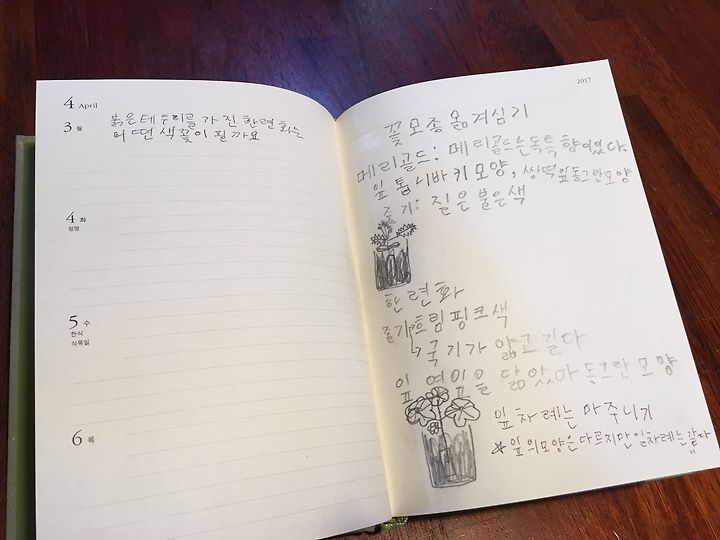 4 April
3 월
붉은테두리를 가진한련화는
어떤색꽃이 필까요
4 화
청명
5 수
한식
식목일
6 목
2017
꽃모종옮겨심기
메리골드: 메리골드는독특향이있다.
잎 톱니바키모양, 쌍떡잎동그란모양
줄기: 짙은붉은색
한련화
줄기흐림핑크색
→국기가 얇고길다
잎 연잎을 닮았마 동그란모양
잎차례는마주니기
☆잎의모양은다르지만잎차례는같다
93